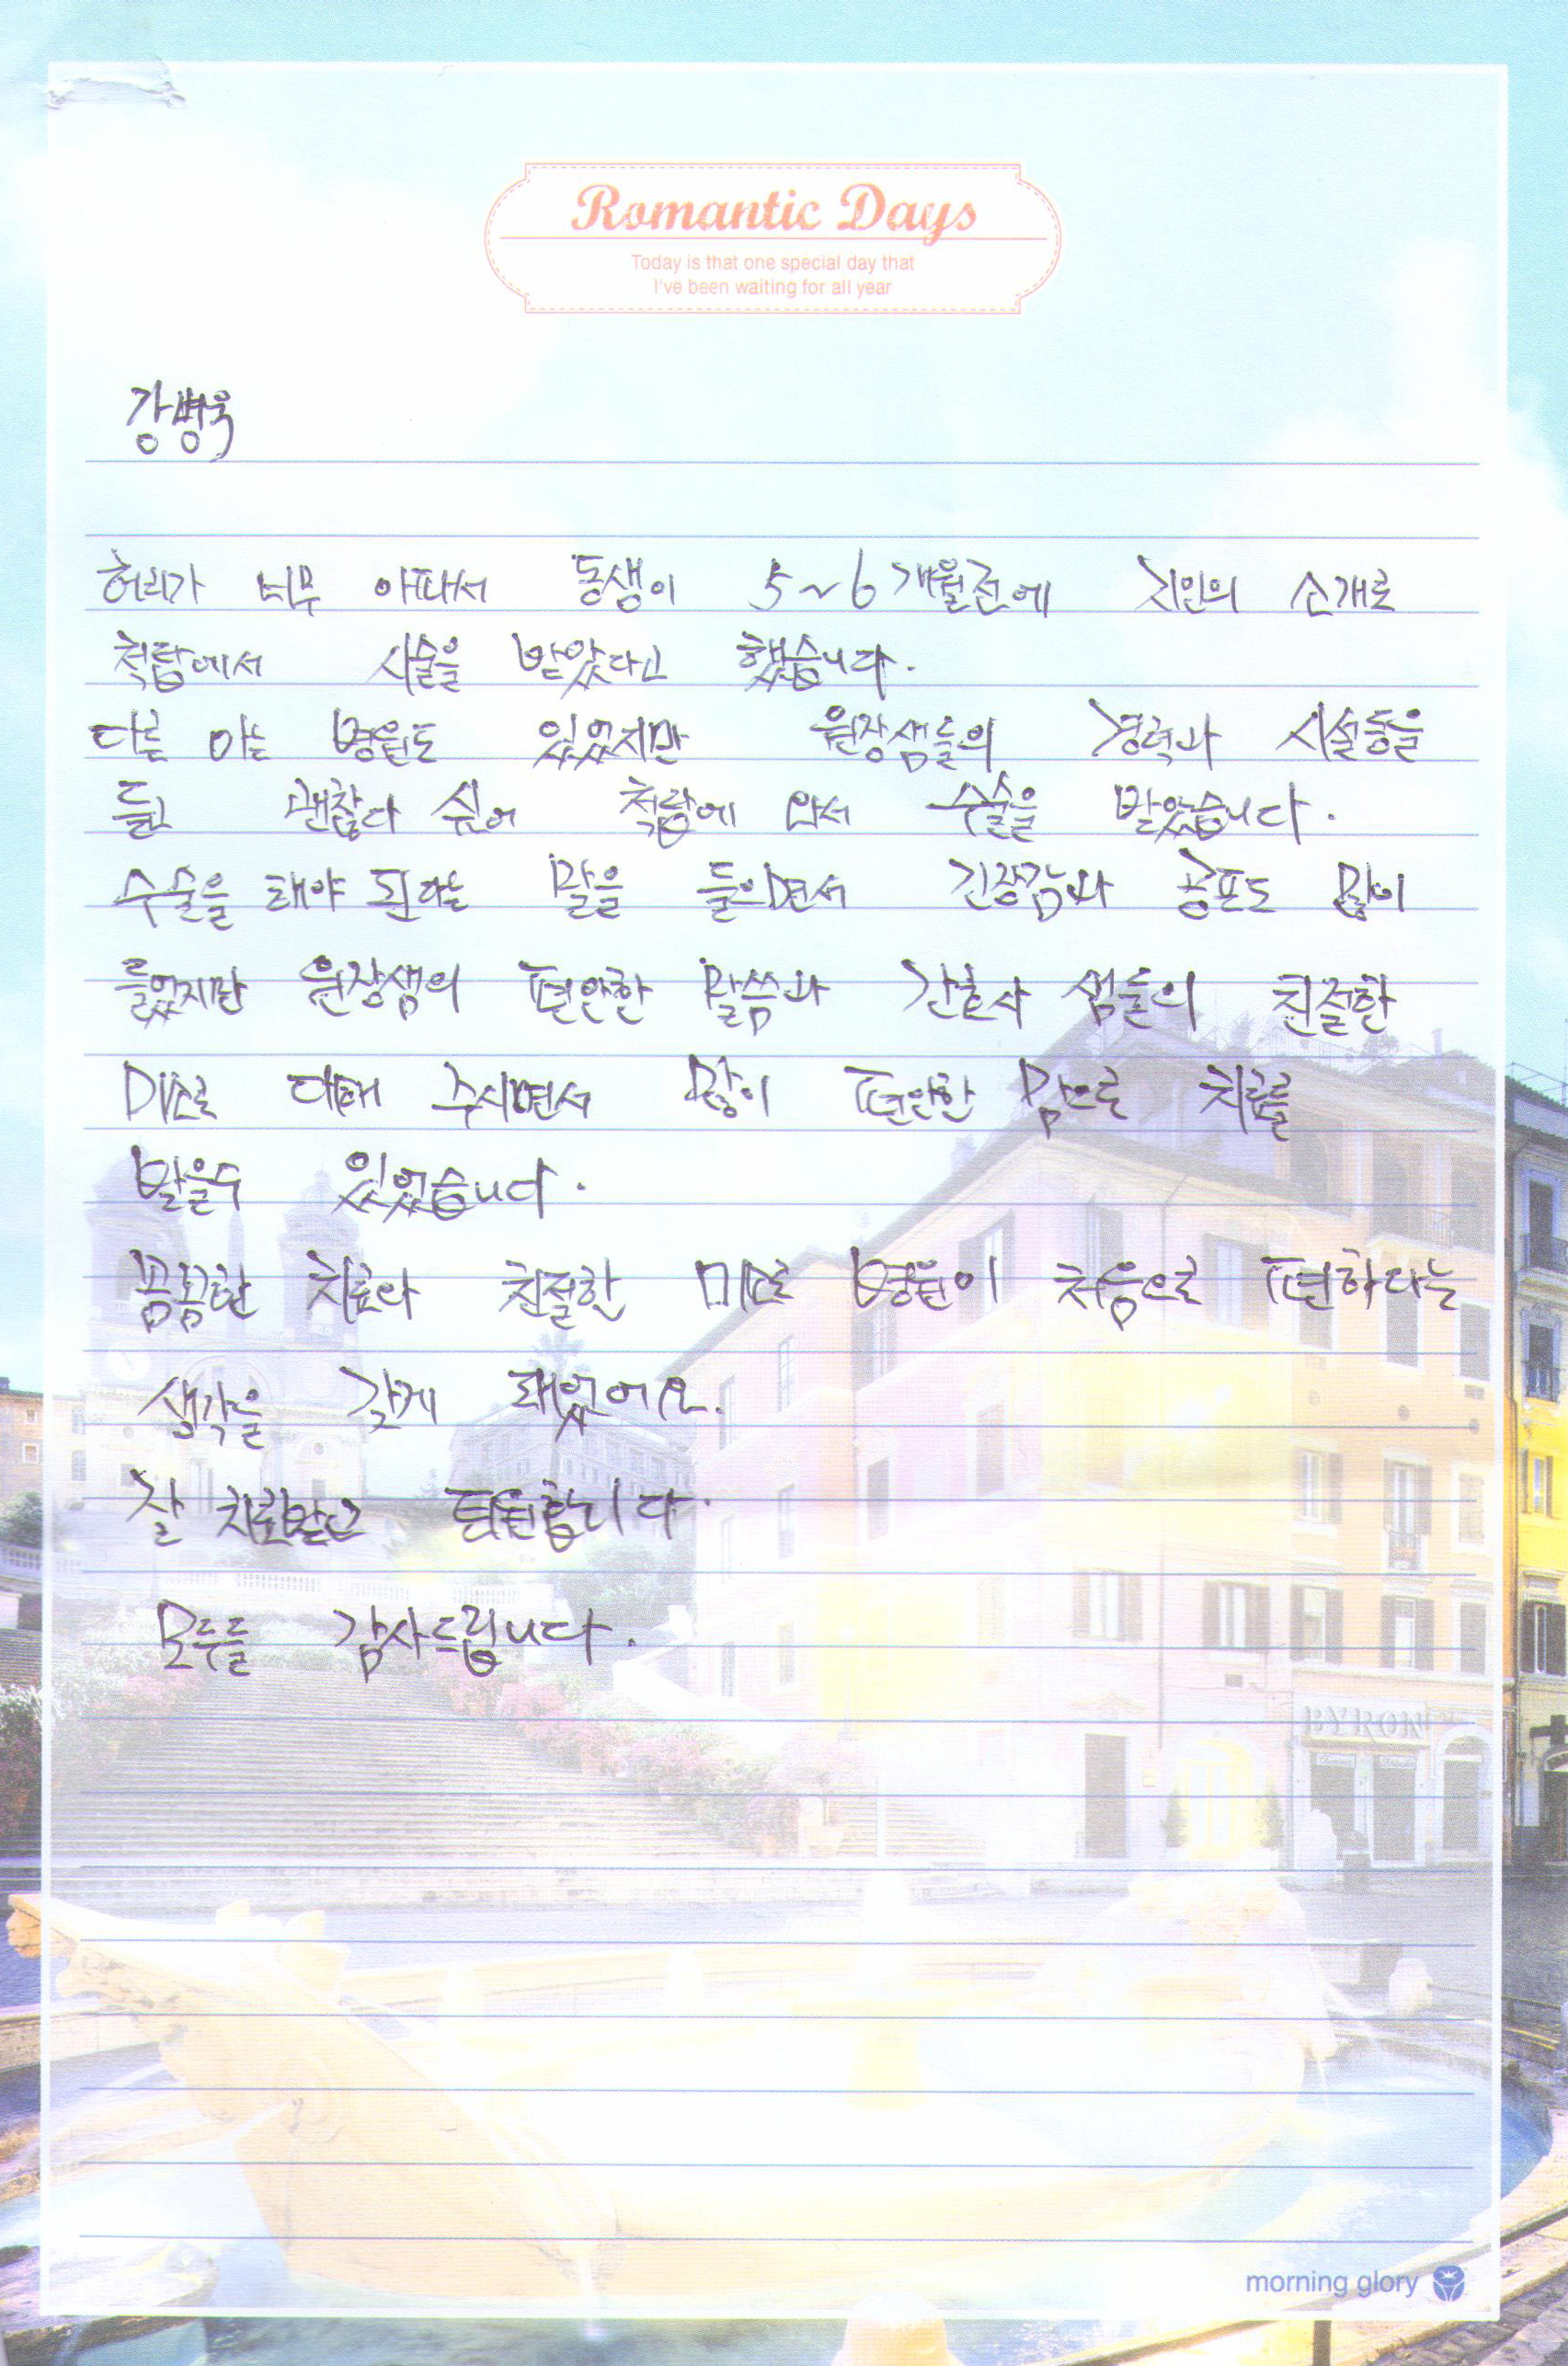 Romantic Days
Today is that one special day that
I've been waiting for all year
강병욱
허리가 너무 아파서 동생이 5~6개월전에 지인의 소개로
척탑에서 시술을 받았다고 했습니다.
다른 아는 병원도 있었지만 원장샘들의 경력과 시설등을
듣고 괜찮다 싶어 척탑에 와서 수술을 받았습니다.
수술을 해야 된다는 말을 들으면서 긴장감과 공포도 많이
들었지만 원장샘의 편안한 말씀과 간호사 샘들의 친절한
미소로 대해 주시면서 많이 편안한 맘으로 치료를
받을수 있었습니다.
꼼꼼한 치료와 친절한 미소로 병원이 처음으로 편하다는
생각을 갖게 돼었어요.
잘 치료받고 퇴원합니다.
모두들 감사드립니다.
BYRON
morning glory